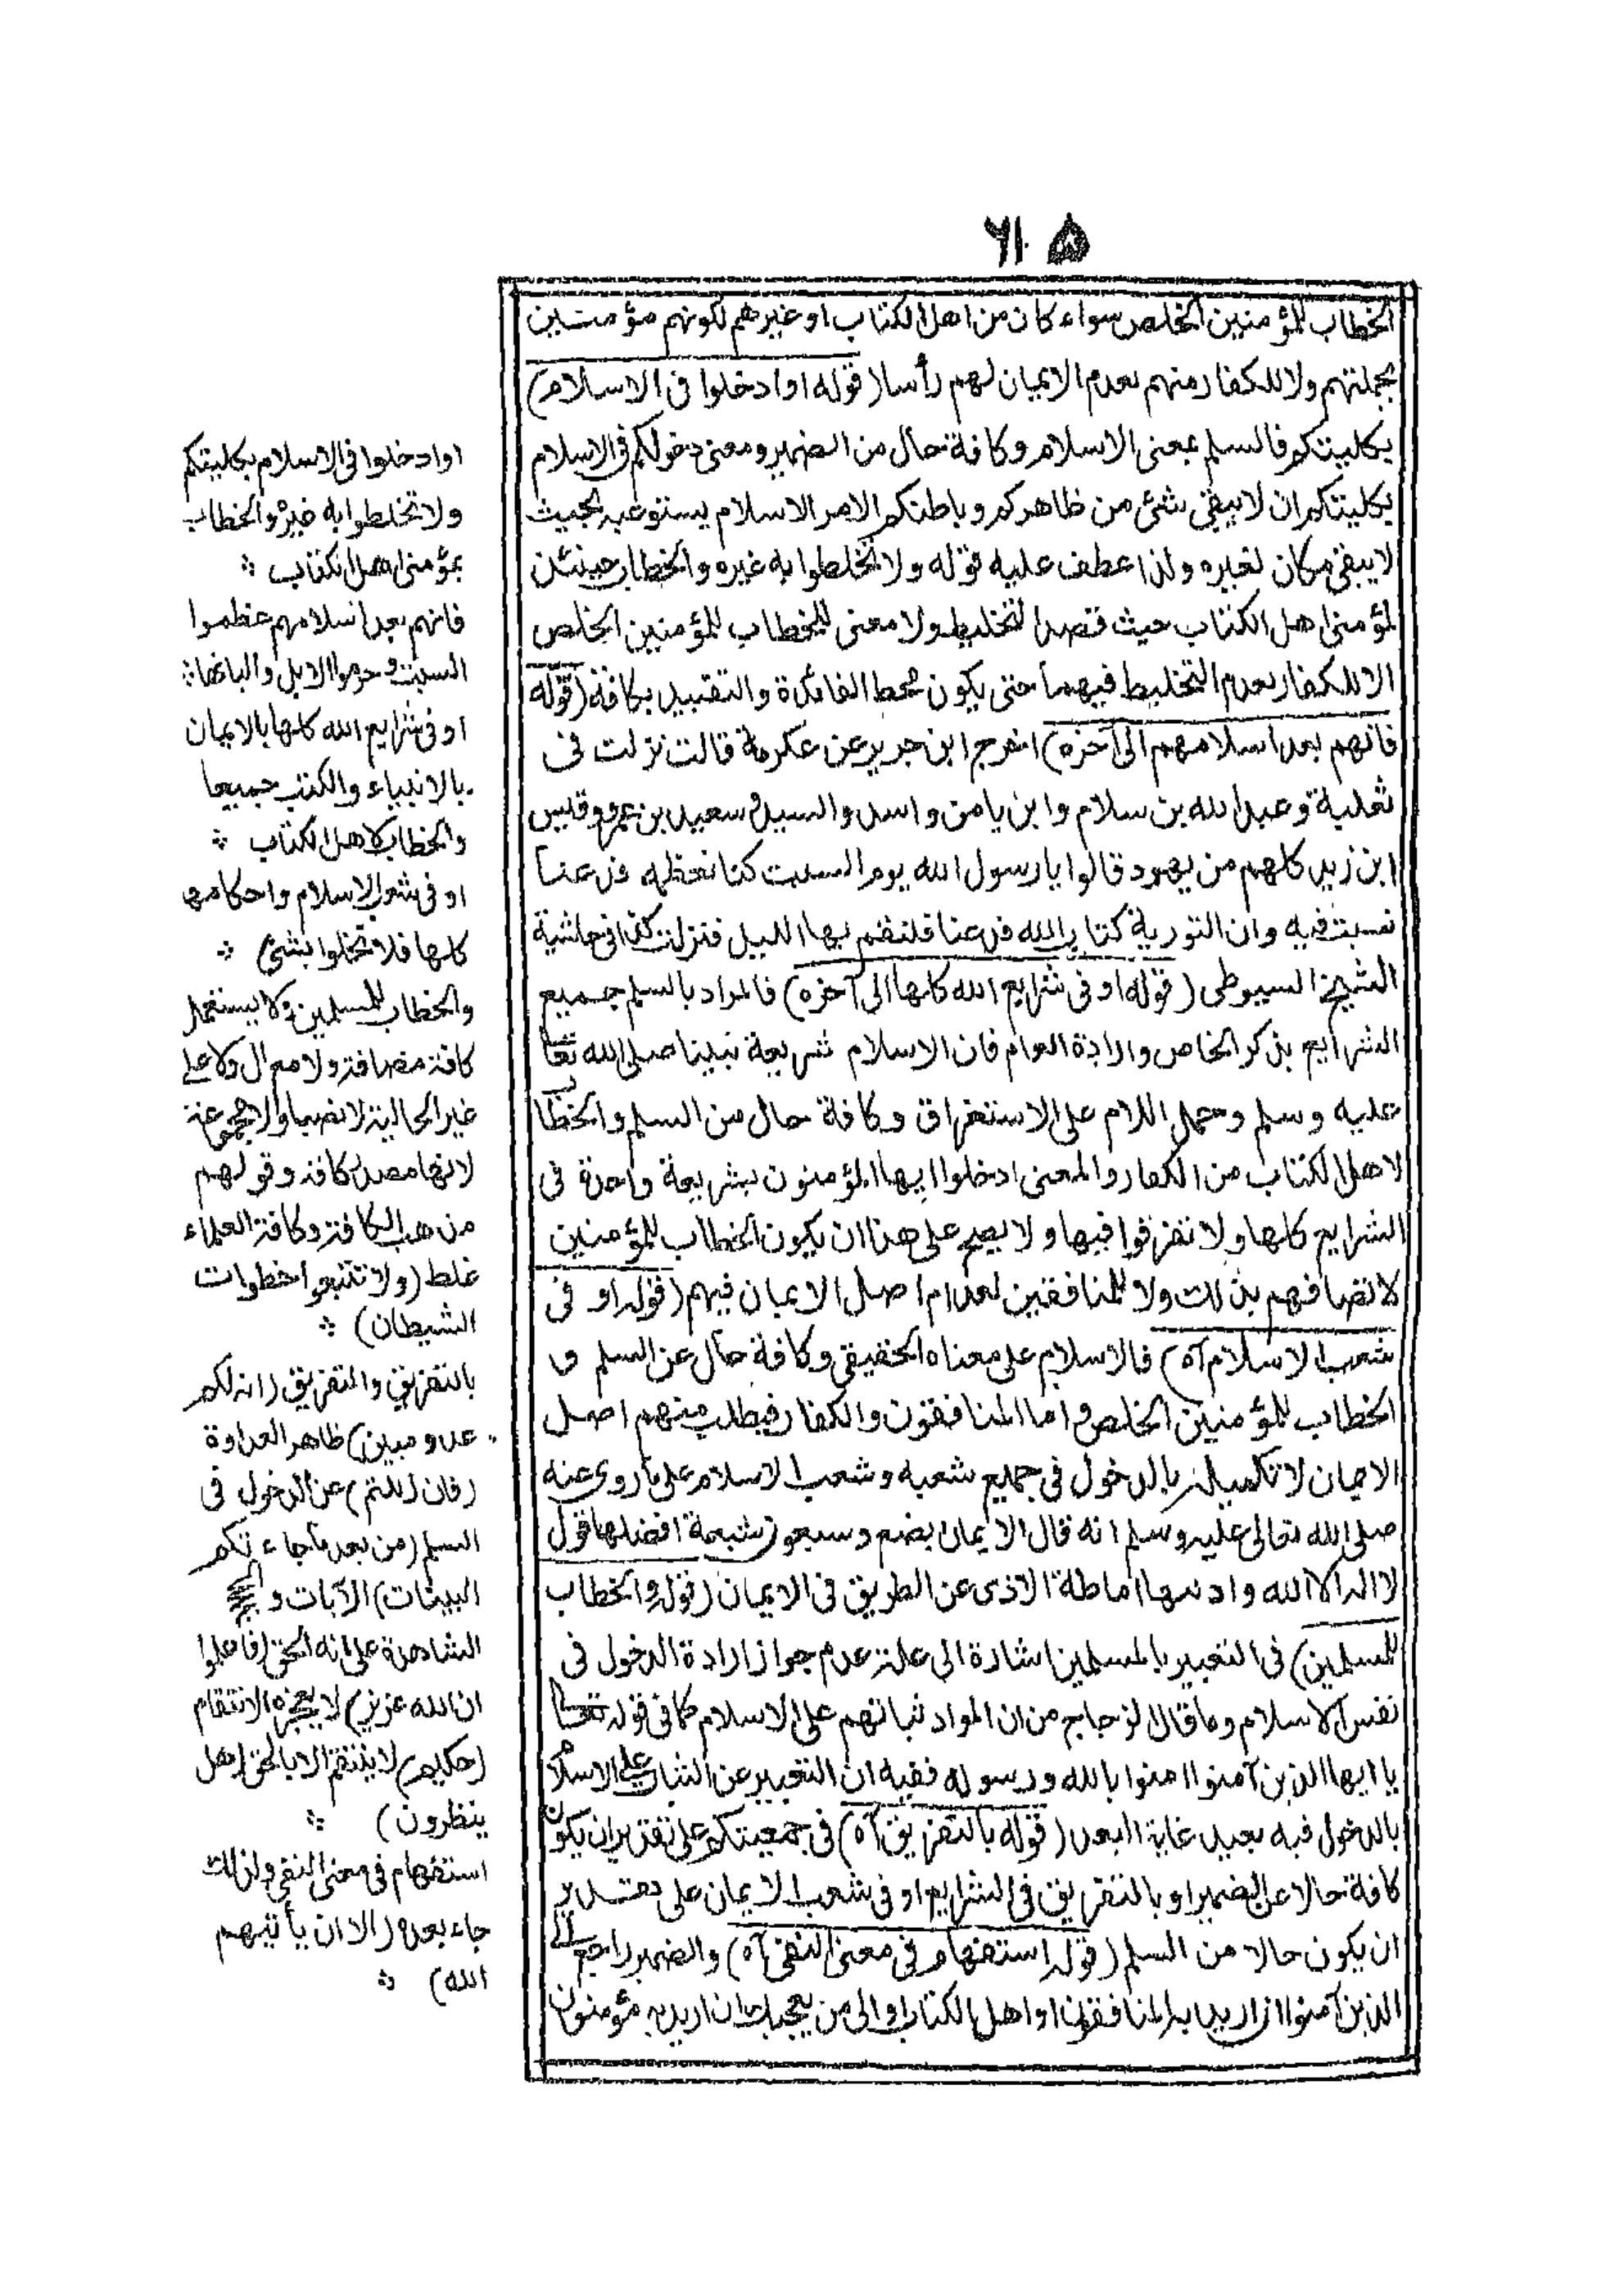 ۵ ۶۱۰
الخطاب للمؤمنين الخلص سواء كان من اهل الكتاب او غيرهم لكونهم مؤمنين
بجملتهم ولا للكفار منهم بعدم الايمان لهم رأسا (قوله او ادخلوا فى الاسلام)
بكليتكم فالسلم بمعنى الاسلام وكافة حال من الضمير ومعنى دخولكم فى الاسلام
بكليتكم ان لا يبقى شئ من ظاهركم وباطنكم الا مر الاسلام يستوعبه بحيث
لا يبقى مكان لغيره ولذا عطف عليه قوله ولا تخلطوا به غيره والخطاب حينئذ
لمؤمنى اهل الكتاب حيث قصدا لتخليط ولا معنى للخطاب للمؤمنين الخلص
الا للكفار بعدم التخليط فيهما حتى يكون محط الفائدة والتقييد بكافة (قوله
فانهم بعد اسلامهم الى آخره) اخرج ابن جرير عن عكرمة قالت نزلت فى
ثعلبة وعبد الله بن سلام وابن يامن واسد والسيد وسعيد بن عمرو وقيس
ابن زيد كلهم من يهود قالوا يا رسول الله يوم السبت كنا نعظمه فدعنا
نسبت فيه وان التورية كتاب الله فدعنا فلنقم بها الليل فنزلت كذا فى حاشية
الشيخ السيوطى (قوله او فى شرايع الله كلها الى آخره) فالمراد بالسلم جميع
الشرايع بذكر الخاص وارادة العام فان الاسلام شريعة نبينا صلى الله تعا
عليه وسلم وحمل اللام على الاستغراق وكافة حال من السلم والخطاب
لاهل الكتاب من الكفار والمعنى ادخلوا ايها المؤمنون بشريعة واحدة فى
الشرايع كلها ولا تفرقوا فيها ولا يصح على هذا ان يكون الخطاب للمؤمنين
لاتصافهم بذلك ولا للمنافقين لعدم اصل الايمان فيهم (قوله او فى
شعب الاسلام آه) فالاسلام على معناه الحقيقى وكافة حال عن السلم و
الخطاب للمؤمنين الخلص واما المنافقون والكفار فيطلب منهم اصل
الايمان لا تكميله بالدخول فى جميع شعبه وشعب الاسلام على ما روى عنه
صلى الله تعالى عليه وسلم انه قال الايمان بضع وسبعون شعبة افضلها قول
لا اله الا الله وادنيها اماطة الاذى عن الطريق فى الايمان (قوله والخطاب
للمسلمين) فى التعبير بالمسلمين اشارة الى علة عدم جواز ارادة الدخول فى
نفس الاسلام وما قال الزجاج من ان المراد ثباتهم على الاسلام كما فى قوله تعا
يا ايها الذين آمنوا امنوا بالله ورسوله ففيه ان التعبير عن الثبات على الاسلام
بالدخول فيه بعيد غاية البعد (قوله بالتفريق آه) فى جمعيتكم على تقدير ان يكون
كافة حالا عن الضمير او بالتفريق فى الشرايع او فى شعب الايمان على تقدير
ان يكون حالا من السلم (قوله استفهام فى معنى النفى آه) والضمير راجع الى
الذين آمنوا ان اريد به المنافقون او اهل الكتاب والى من يعجبك ان اريد به مؤمنون
او ادخلوا فى الاسلام بكليتكم
ولا تخلطوا به غيره والخطاب
بمؤمنى اهل الكتاب
فانهم بعد اسلامهم عظموا
السبت وحرموا الابل والبانها
او فى شرايع الله كلها بالايمان
بالانبياء والكتب جميعا
والخطاب لاهل الكتاب
او فى شعب الاسلام واحكامها
كلها فلا تخلوا بشئ
والخطاب للمسلمين ولا يستعمل
كافة مضافة ولا مع ال ولا على
غير الحالية لا نصبا ولا
لانها مصدر كافة وقولهم
مذهب الكافة وكافة العلماء
غلط (ولا تتبعوا خطوات
الشيطان)
بالتفريق والتفريق (انه لكم
عدو مبين) ظاهر العداوة
(فان زللتم) عن الدخول فى
السلم (من بعد ما جاءتكم
البينات) الآيات و
الشاهدة على انه الحق (فاعلموا
ان الله عزيز) لا يعجزه الانتقام
(حكيم) لا ينتقم الا بالحق (هل
ينظرون)
استفهام فى معنى النفى ولذلك
جاء بعده (الا ان يأتيهم
الله)